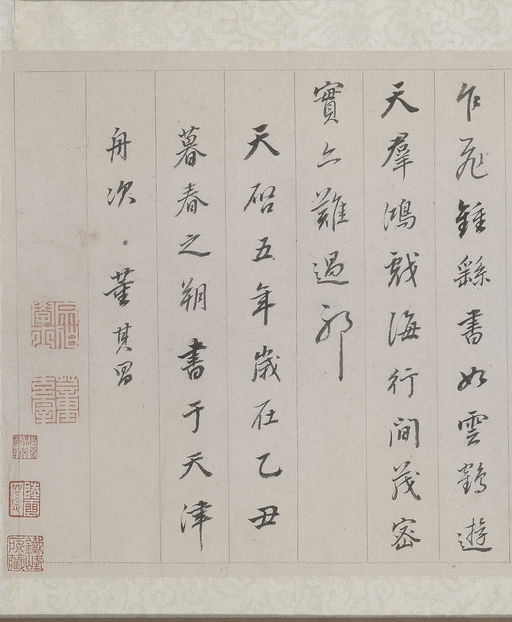 乍飛鍾繇書如雲鶴遊
天羣鴻戲海行間茂密
實亦難過耶
天啓五年歲在乙丑
暮春之朔書于天津
舟次 董其昌